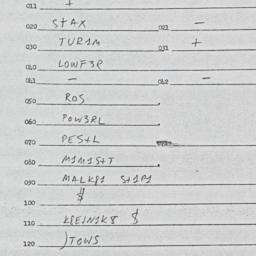 011 +
020 STAX 021 —
030 TUR1M 031 +
040 LOWF3R
041 — 042 —
050 ROS
060 POW3RL
070 PES+L
080 M1M1S+T
090 MALKP1 S+1P1
100 $
110 K8E1N1K8 $
120 )TOWS